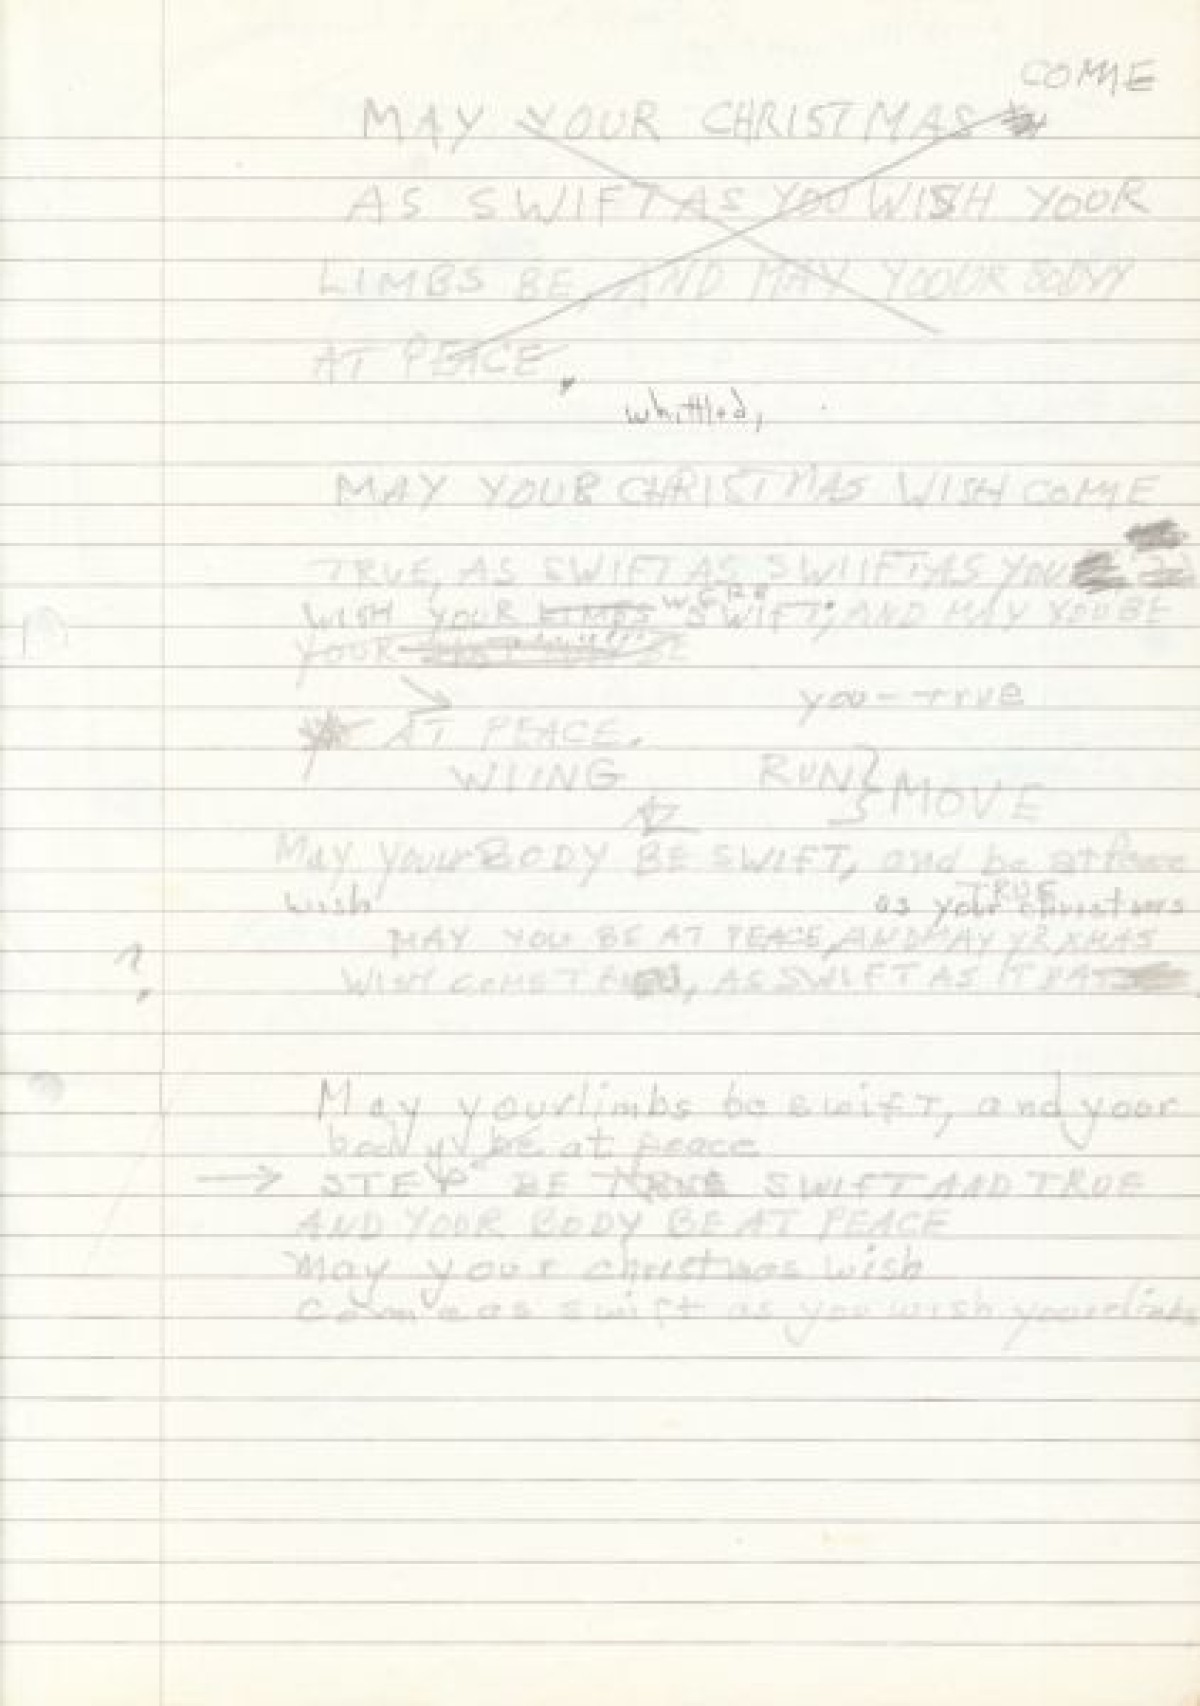 COME
MAY YOUR CHRISTMAS
AS SWIFT AS YOU WISH YOUR
LIMBS BE, AND MAY YOOUR BODYY
AT PEACE,
whittled,
MAY YOUR CHRISTMAS WISH COME
TRUE, AS SWIFT AS SWIIFT AS YOU
WERE
WISH YOUR LIMBS SWIFT; AND MAY YOU BE
YOUR BE
you--true
AT PEACE.
WIING RUN} MOVE
May your BODY BE SWIFT, and be at Peace
TRUE
wish as your christmas
MAY YOU BE AT PEACE, AND MAY YR XMAS
? WISH COME, AS SWIFT AS IT
May your limbs be swift, and your
body be at peace
→ STEP BE TRUE SWIFT AND TRUE
AND YOUR BODY BE AT PEACE
May your christmas wish
Come as swift as you wish your limbs